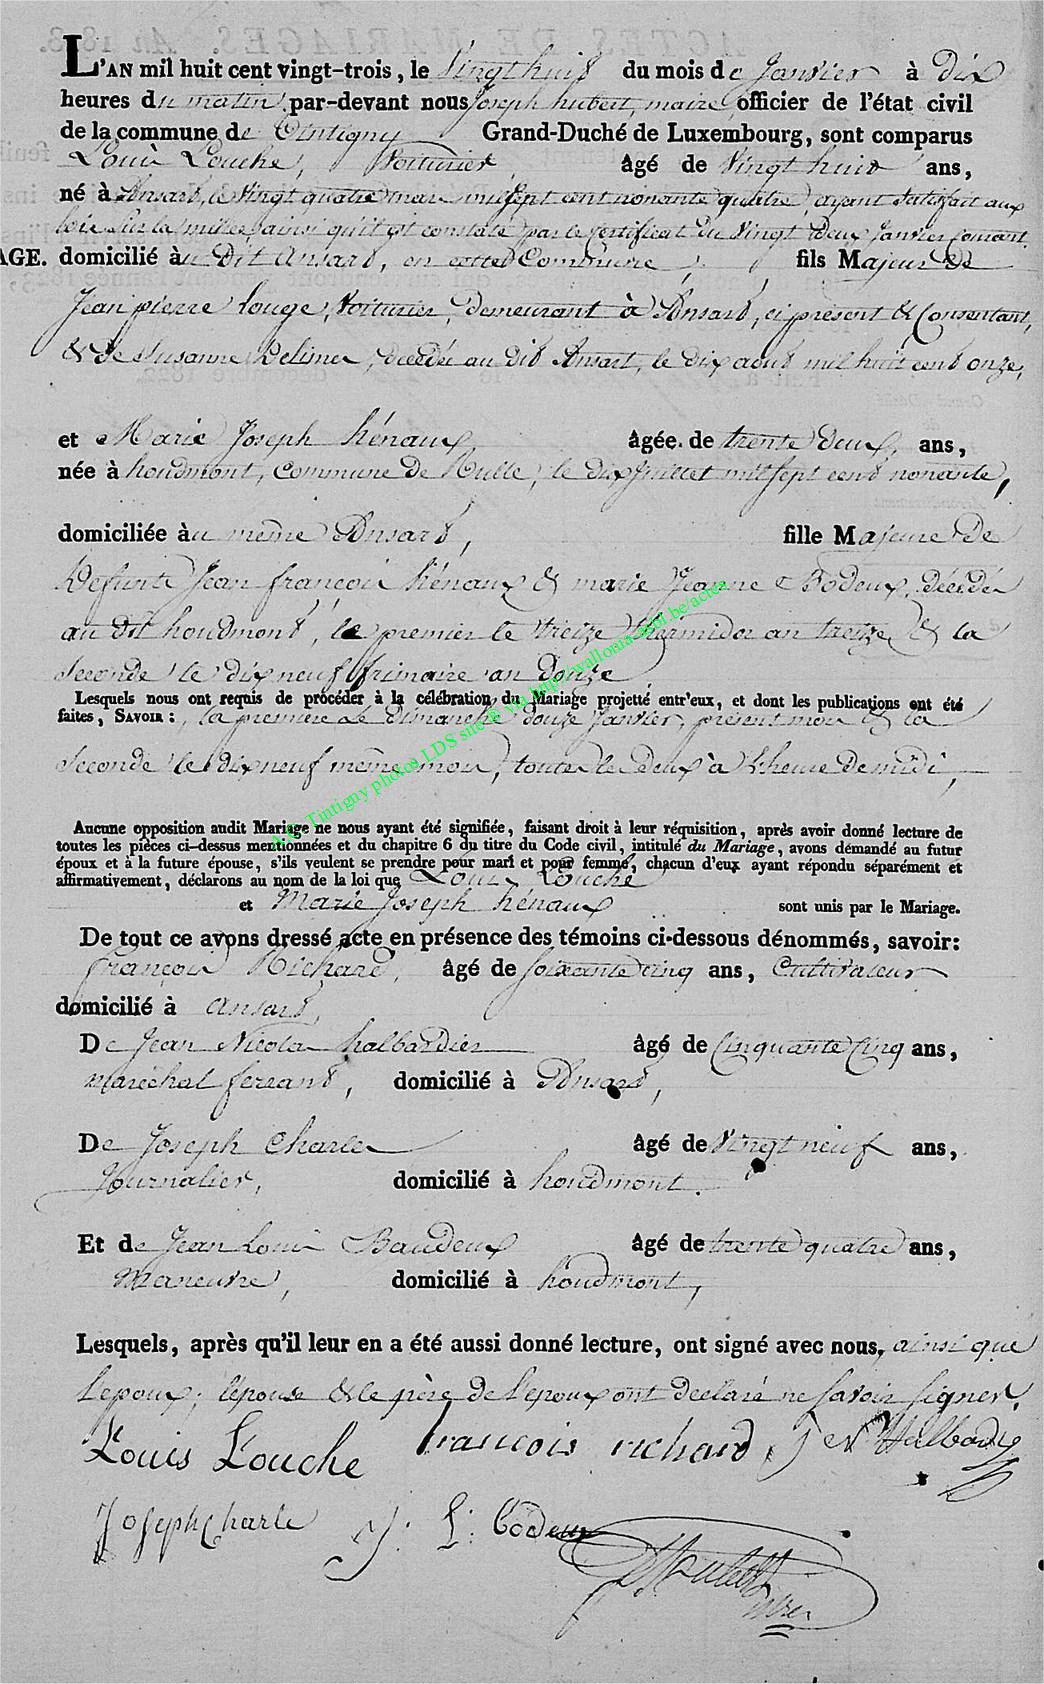 L'AN mil huit cent vingt-trois, le Vingt huit du mois de Janvier à dix
heures du matin par-devant nous Joseph hubert, maire, officier de l'état civil
de la commune de Tintigny Grand-Duché de Luxembourg, sont comparus
Louis Louche, Voiturier âgé de Vingt huit ans,
né à Ansart, le Vingt quatre mars mil sept cent nonante quatre, ayant satisfait aux
lois sur la milice ainsi qu'il est constaté par le Certificat du Vingt deux Janvier Courant.
AGE. domicilié au dit Ansart, en cette Commune, fils Majeur de
Jean pierre Louge, Voiturier, demeurant à Ansart, ci présent & Consentant,
& de Susanne Delime, décédée au dit Ansart, le dix août mil huit cent onze,
et Marie Joseph hénaux âgée. de trente deux, ans,
née à houdmont, Commune de Rulle, le dix Juillet mil sept cent nonante,
domiciliée au même Ansart, fille Majeure de
Defunts Jean françois hénaux & marie Jeanne Bodeux, décédés
au dit houdmont, le premier le treize thermidor an treize & la
Seconde le dix neuf frimaire an douze
Lesquels nous ont requis de procéder à la célébration du Mariage projetté entr'eux, et dont les publications ont été
faites, SAVOIR : la premiere le dimanche douze Janvier, présent mois & la
Seconde le dix neuf même mois, toutes les deux à l'heure de midi,
Aucune opposition audit Mariage ne nous ayant été signifiée, faisant droit à leur réquisition, après avoir donné lecture de
toutes les pièces ci-dessus mentionnées et du chapitre 6 du titre du Code civil, intitulé du Mariage, avons demandé au futur
époux et à la future épouse, s'ils veulent se prendre pour mari et pour femme, chacun d'eux ayant répondu séparément et
affirmativement, déclarons au nom de la loi que Louis Louche
et Marie Joseph hénaux sont unis par le Mariage.
De tout ce avons dressé acte en présence des témoins ci-dessous dénommés, savoir:
françois Richard, âgé de soixante cinq ans, Cultivateur
domicilié à Ansart,
De Jean Nicolas halbardier âgé de Cinquante Cinq ans,
maréchal ferrant, domicilié à Ansart,
De Joseph Charles âgé de Vingt neuf ans,
Journalier, domicilié à houdmont.
Et de Jean Louis Baudeux âgé de trente quatre ans,
Maneuvre, domicilié à houdmont,
Lesquels, après qu'il leur en a été aussi donné lecture, ont signé avec nous, ainsi que
l'epoux; l'épouse & le père de l'epoux ont declaré ne savoir signer.
Louis Louche francois richard J en Halbardie
Joseph Charle J: L: Bodeux
J Hubert
maire
A.C. Tintigny photos LDS site © via http://wallonia-asbl.be/actes